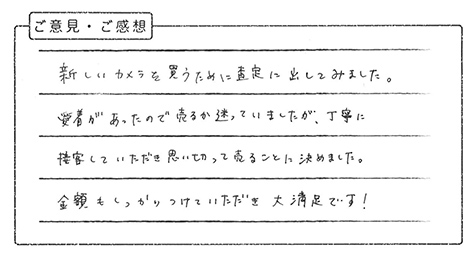 ご意見・ご感想
新しいカメラを買うために査定に出してみました。
愛着があったので売るか迷っていましたが、丁寧に
接客していただき思い切って売ることに決めました。
金額もしっかりつけていただき大満足です！